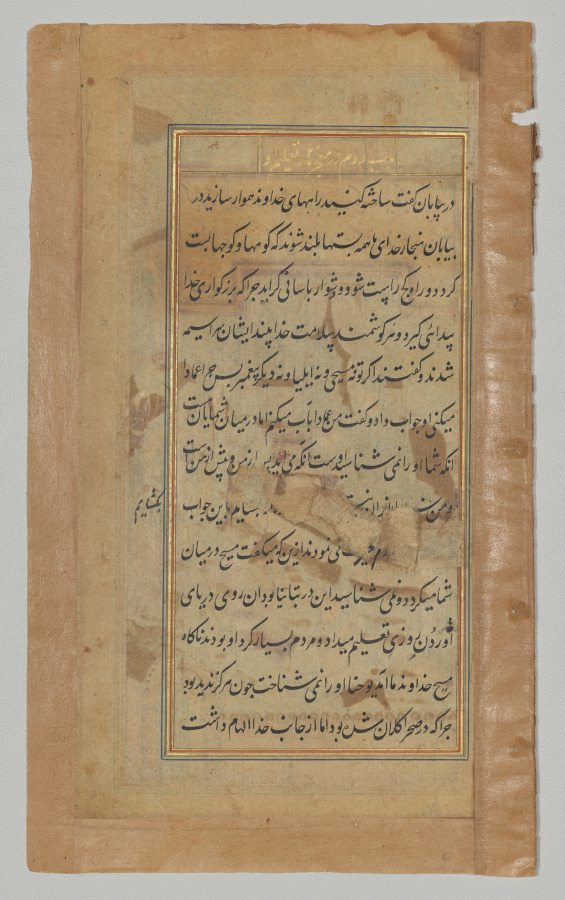 باب دوم در معجزها و تعلیم و
در بیابان گفت ساخته کنید راههای خداوند هموار سازید در
بیابان منجار خدای ما همه پستها بلند شوند که کوهها و کوچها پست
کردد و راه کج راست شود و دشوار باسانی کراید چرا که بزرکواری خدا
پیدائی کیرد و هر کوشمند سلامت خدا بیند ایشان سراسیمه
شدند و کفتند اکر تو نه مسیحی و نه ایلیا و نه دیکر پیغمبر پس چرا عماد
میکنی او جواب داد و کفت من عماد بآب میکنم اما در میان شمایان است
انکه شما او را نمی شناسید اوست انکه می آید پس از من و پیش از من است
و من بکشایم این جواب
بکشایم
نمودند ازین که میکفت مسیح در میان
شما میکردد و نمی شناسید این در بتانیا بود ان روی دریای
اوردن روزی تعلیم میداد و مردم بسیار کرد او بودند ناکاه
مسیح خداوند ما آمد یوحنا او را نمی شناخت چون هرکز ندیده بود
چرا که در صحرا کلان شده بود اما از جانب خدا الهام داشت